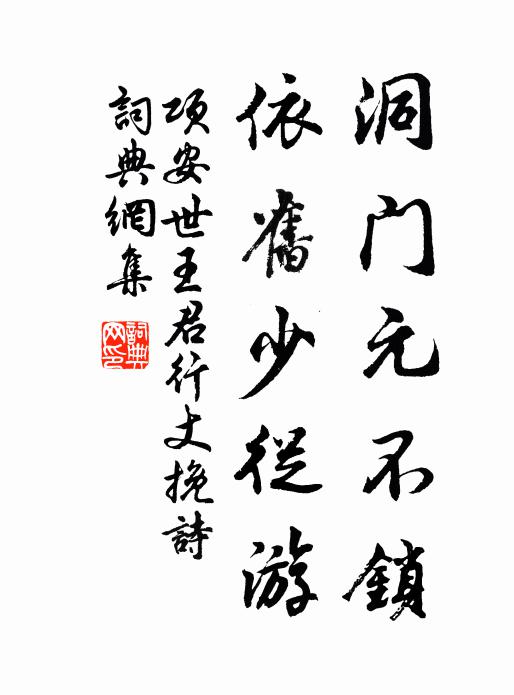 洞门元不鎖
依舊少從游
项安世王君行丈挽詩
詞典網集
詞典网印